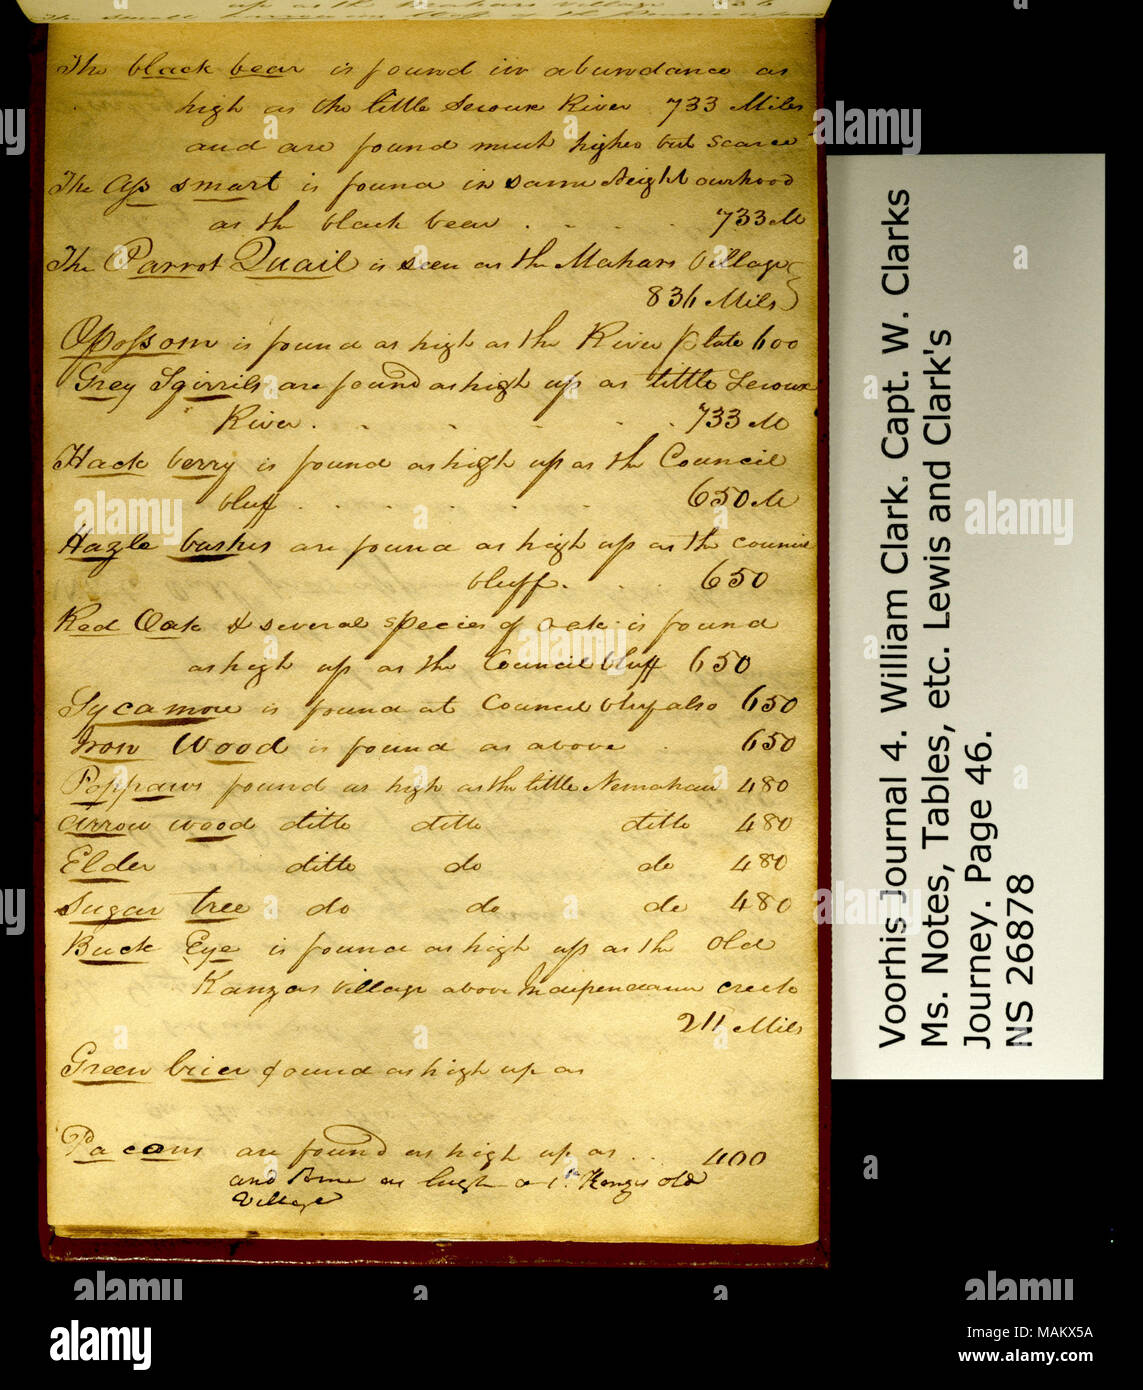 up as the Mahars village 836
The black bear is found in abundance as
high as the little Seioux River 733 Miles
and are found much higher but scarce
The Ass smart is found in same Neighbourhood
as the black bear . . . . . 733 M
The Parrot Quail is seen as the Mahars Village
836 Mils
Opossom is found as high as the River plate 600
Grey Sqirrils are found as high up as little Seioux
River . . . . . . . 733 M
Hack berry is found as high up as the Council
bluff . . . . . . . 650 M
Hazle bushes are found as high up as the council
bluff. . . . 650
Red Oak & several species of oak is found
as high up as the Council bluff 650
Sycamore is found at Council bluff also 650
Iron Wood is found as above . 650
Poppaws found as high as the little Nemahaw 480
Arrow wood ditto ditto ditto 480
Elder ditto do do 480
Sugar tree do do do 480
Buck Eye is found as high up as the Old
Kanzas village above Independance creek
211 Mils
Green brier found as high up as
Pacans are found as high up as . . 400
and Some as high as Kanzs old
Village
Voorhis Journal 4. William Clark. Capt. W. Clarks
Ms. Notes, Tables, etc. Lewis and Clark's
Journey. Page 46.
NS 26878
alamy
Image ID: MAKX5A
www.alamy.com